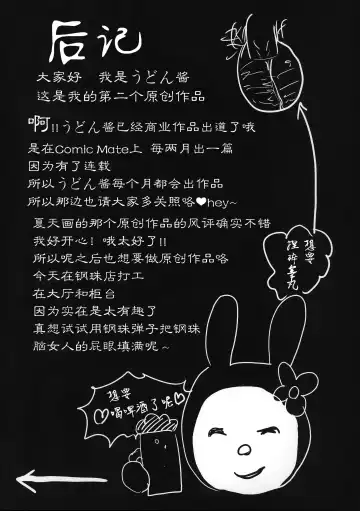 后记
大家好 我是うどん酱
这是我的第二个原创作品
啊!!うどん酱已经商业作品出道了哦
是在Comic Mate上 每两月出一篇
因为有了连载
所以うどん酱每个月都会出作品
所以那边也请大家多关照咯♥hey~
夏天画的那个原创作品的风评确实不错
我好开心！哦太好了!!
所以呢之后也想要做原创作品咯
今天在钢珠店打工
在大厅和柜台
因为实在是太有趣了
真想试试用钢珠弹子把钢珠
脑女人的屁眼填满呢～
想要
捏碎睾丸
想要
♡喝啤酒了呢♡